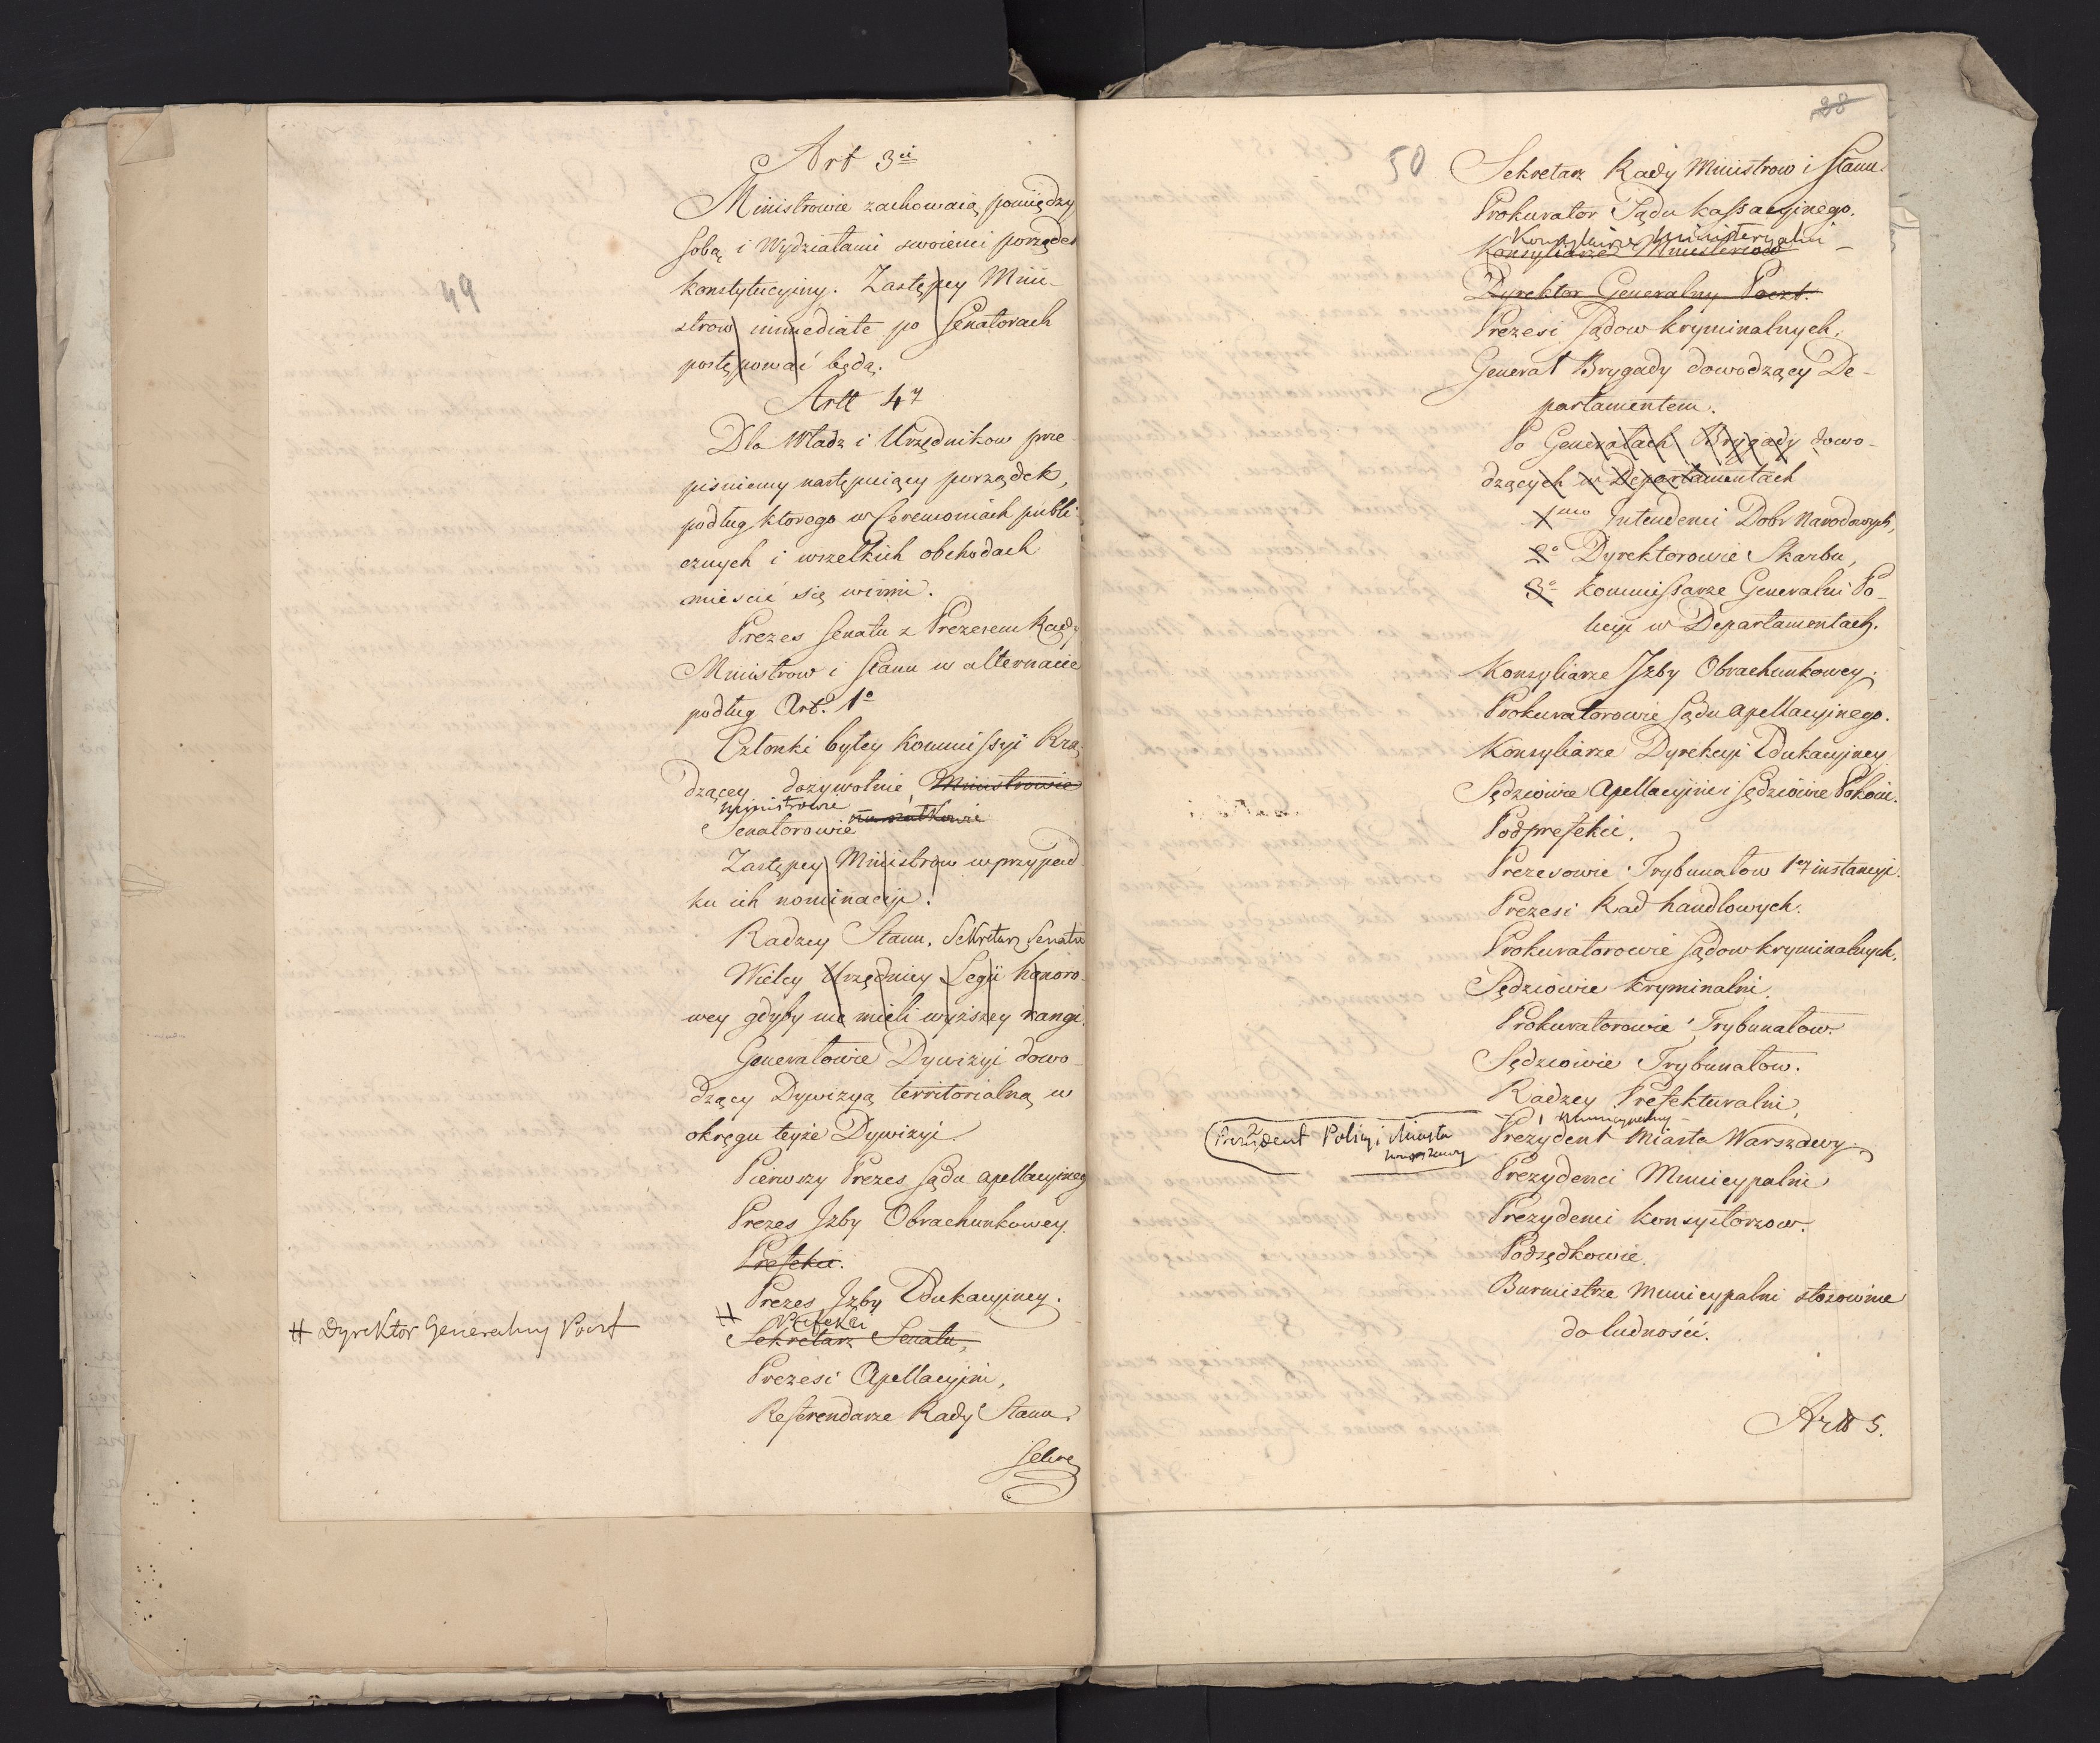 49
Art 3ci
Ministrowie zachowaią pomiędzy
sobą i Wydziałami swoiemi porządek
konstytucyiny. Zastępcy Mini-
strow immediate po Senatorach
postępować będą.
Artt 4ty
Dla Władz i Urzędnikow prze-
pisuiemy następuiący porządek,
podług ktorego w Ceremoniach publi-
cznych i wszelkich obchodach
mieścić się winni.
Prezes Senatu z Prezesem Rady
Ministrow i Stanu w alternacie
podług Art. 1o
Członki byłey Kommissyi Rzą-
dzącey dożywotnie, Ministrowie
Ministrowie
Senatorowie
Zastępcy Ministrow w przypad-
ku ich nominacyi.
Radzcy Stanu. Sekretarz Senatu
Wielcy Urzędnicy Legii honoro-
wey gdyby nie mieli wyższey rangi.
Generałowie Dywizyi dowo-
dzący Dywizyą territorialną w
okręgu teyże Dywizyi.
Pierwszy Prezes Sądu apellacyinego
Prezes Izby Obrachunkowey.
Prefekci.
Prezes Izby Edukacyiney.
# Prefekci
# Dyrektor Generalny Poczt
Sekretarz Senatu,
Prezesi Apellacyini,
Referendarze Rady Stanu.
Sekre
28
50
Sekretarz Rady Ministrow i Stanu.
Prokurator Sądu kassacyinego.
Konsyliarze Ministeryalni
Konsyliarze Ministrow
Dyrektor Generalny Poczt.
Prezesi Sądow kryminalnych,
Generał Brygady dowodzący De-
partamentem.
Po Generałach Brygady dowo-
dzących w Departamentach
1mo Intendenci Dobr Narodowych,
2o Dyrektorowie Skarbu,
3o Kommissarze Generalni Po-
licyi w Departamentach.
Konsyliarze Izby Obrachunkowey.
Prokuratorowie Sądu apellacyinego.
Konsyliarze Dyrekcyi Edukacyiney
Sędziowie Apellacyini i Sędziowie Pokoiu.
Podprefekci.
Prezesowie Trybunałow 1ey instancyi.
Prezesi Rad handlowych.
Prokuratorowie Sądow kryminalnych.
Sędziowie kryminalni.
Prokuratorowie Trybunałow.
Sędziowie Trybunałow.
Radzcy Prefekturalni,
Municypalny
Prezydent Miasta Warszawy.
Prezydent Policyi Miasta
Warszawy
Prezydenci Municypalni
Prezydenci konsystorzow.
Podsędkowie.
Burmistrze Municypalni stosownie
do ludności.
Artt 5.